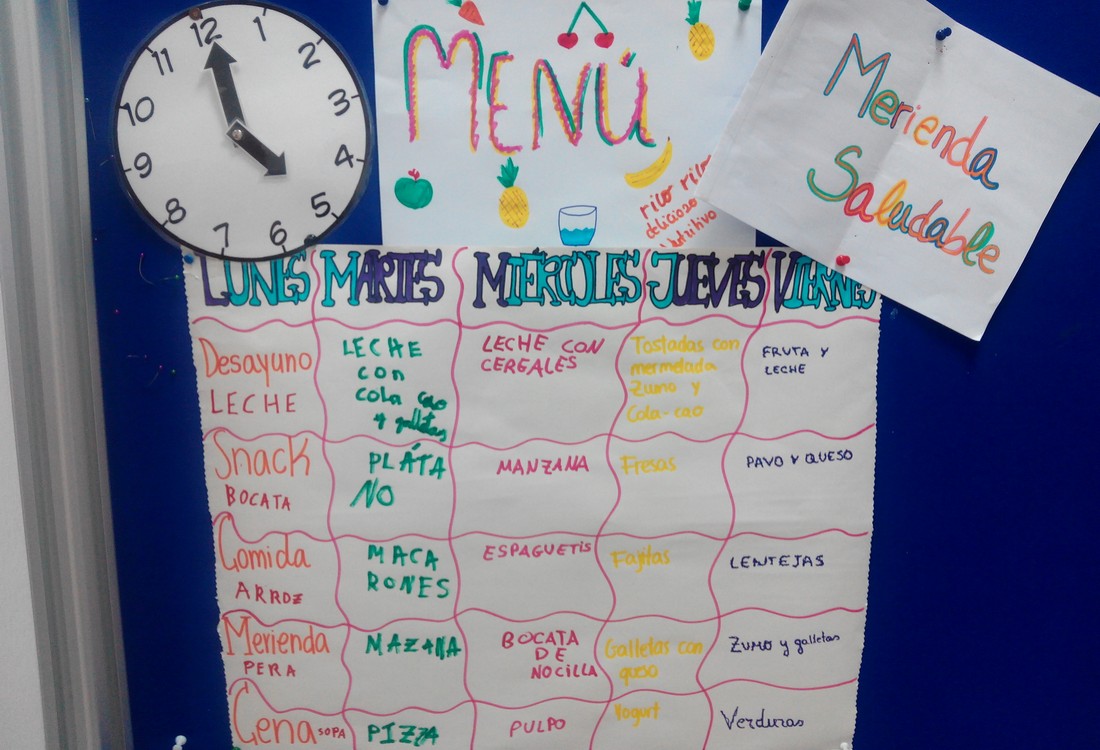 12
1
2
3
4
5
6
7
8
9
10
11
MENÚ
rico rico
delicioso
nutritivo
Merienda
Saludable
LUNES MARTES MIÉRCOLES JUEVES VIERNES
Desayuno
LECHE
LECHE
con
cola cao
y galletas
LECHE CON
CEREALES
Tostadas con
mermelada
Zumo y
Cola-cao
FRUTA Y
LECHE
Snack
BOCATA
PLÁTA
NO
MANZANA
Fresas
PAVO Y QUESO
Comida
ARROZ
MACA
RONES
ESPAGUETIS
Fajitas
LENTEJAS
Merienda
PERA
MAZANA
BOCATA
DE
NOCILLA
Galletas con
queso
ZUMO y galletas
Cena SOPA
PIZZA
PULPO
Yogurt
Verduras